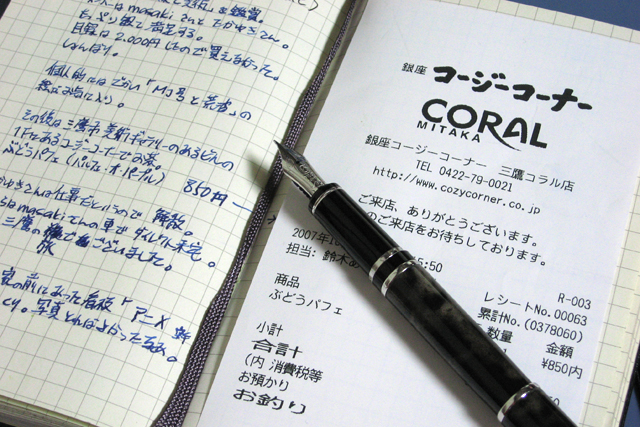 masakiさんとたかゆきさん。
目録は2,000円したので買えなかった。
しょんぼり。
個人的にはでかい「M」号と荒畠」の
絵がお気に入り。
その後は三鷹市美術ギャラリーのあるビルの
1FにあるコージーコーナーでXお茶。
ぶどうパフェ(パルフェ・オ・パープル) 850円
ゆきさんは仕事だというので解散。
masakiさんの車で
三鷹の旅でございました。
家の前にあった看板「アニメ
写真とればよかった
銀座 コージーコーナー
CORAL
MITAKA
銀座コージーコーナー 三鷹コラル店
TEL 0422-79-0021
http://www.cozycorner.co.jp
ご来店、ありがとうございます。
のご来店をお待ちしております。
2007年10 5:50
担当: 鈴木
R-003
レシートNo.00063
累計No.(0378060)
商品 数量 金額
ぶどうパフェ ¥850内
小計
合計
(内 消費税等
お預かり
お釣り